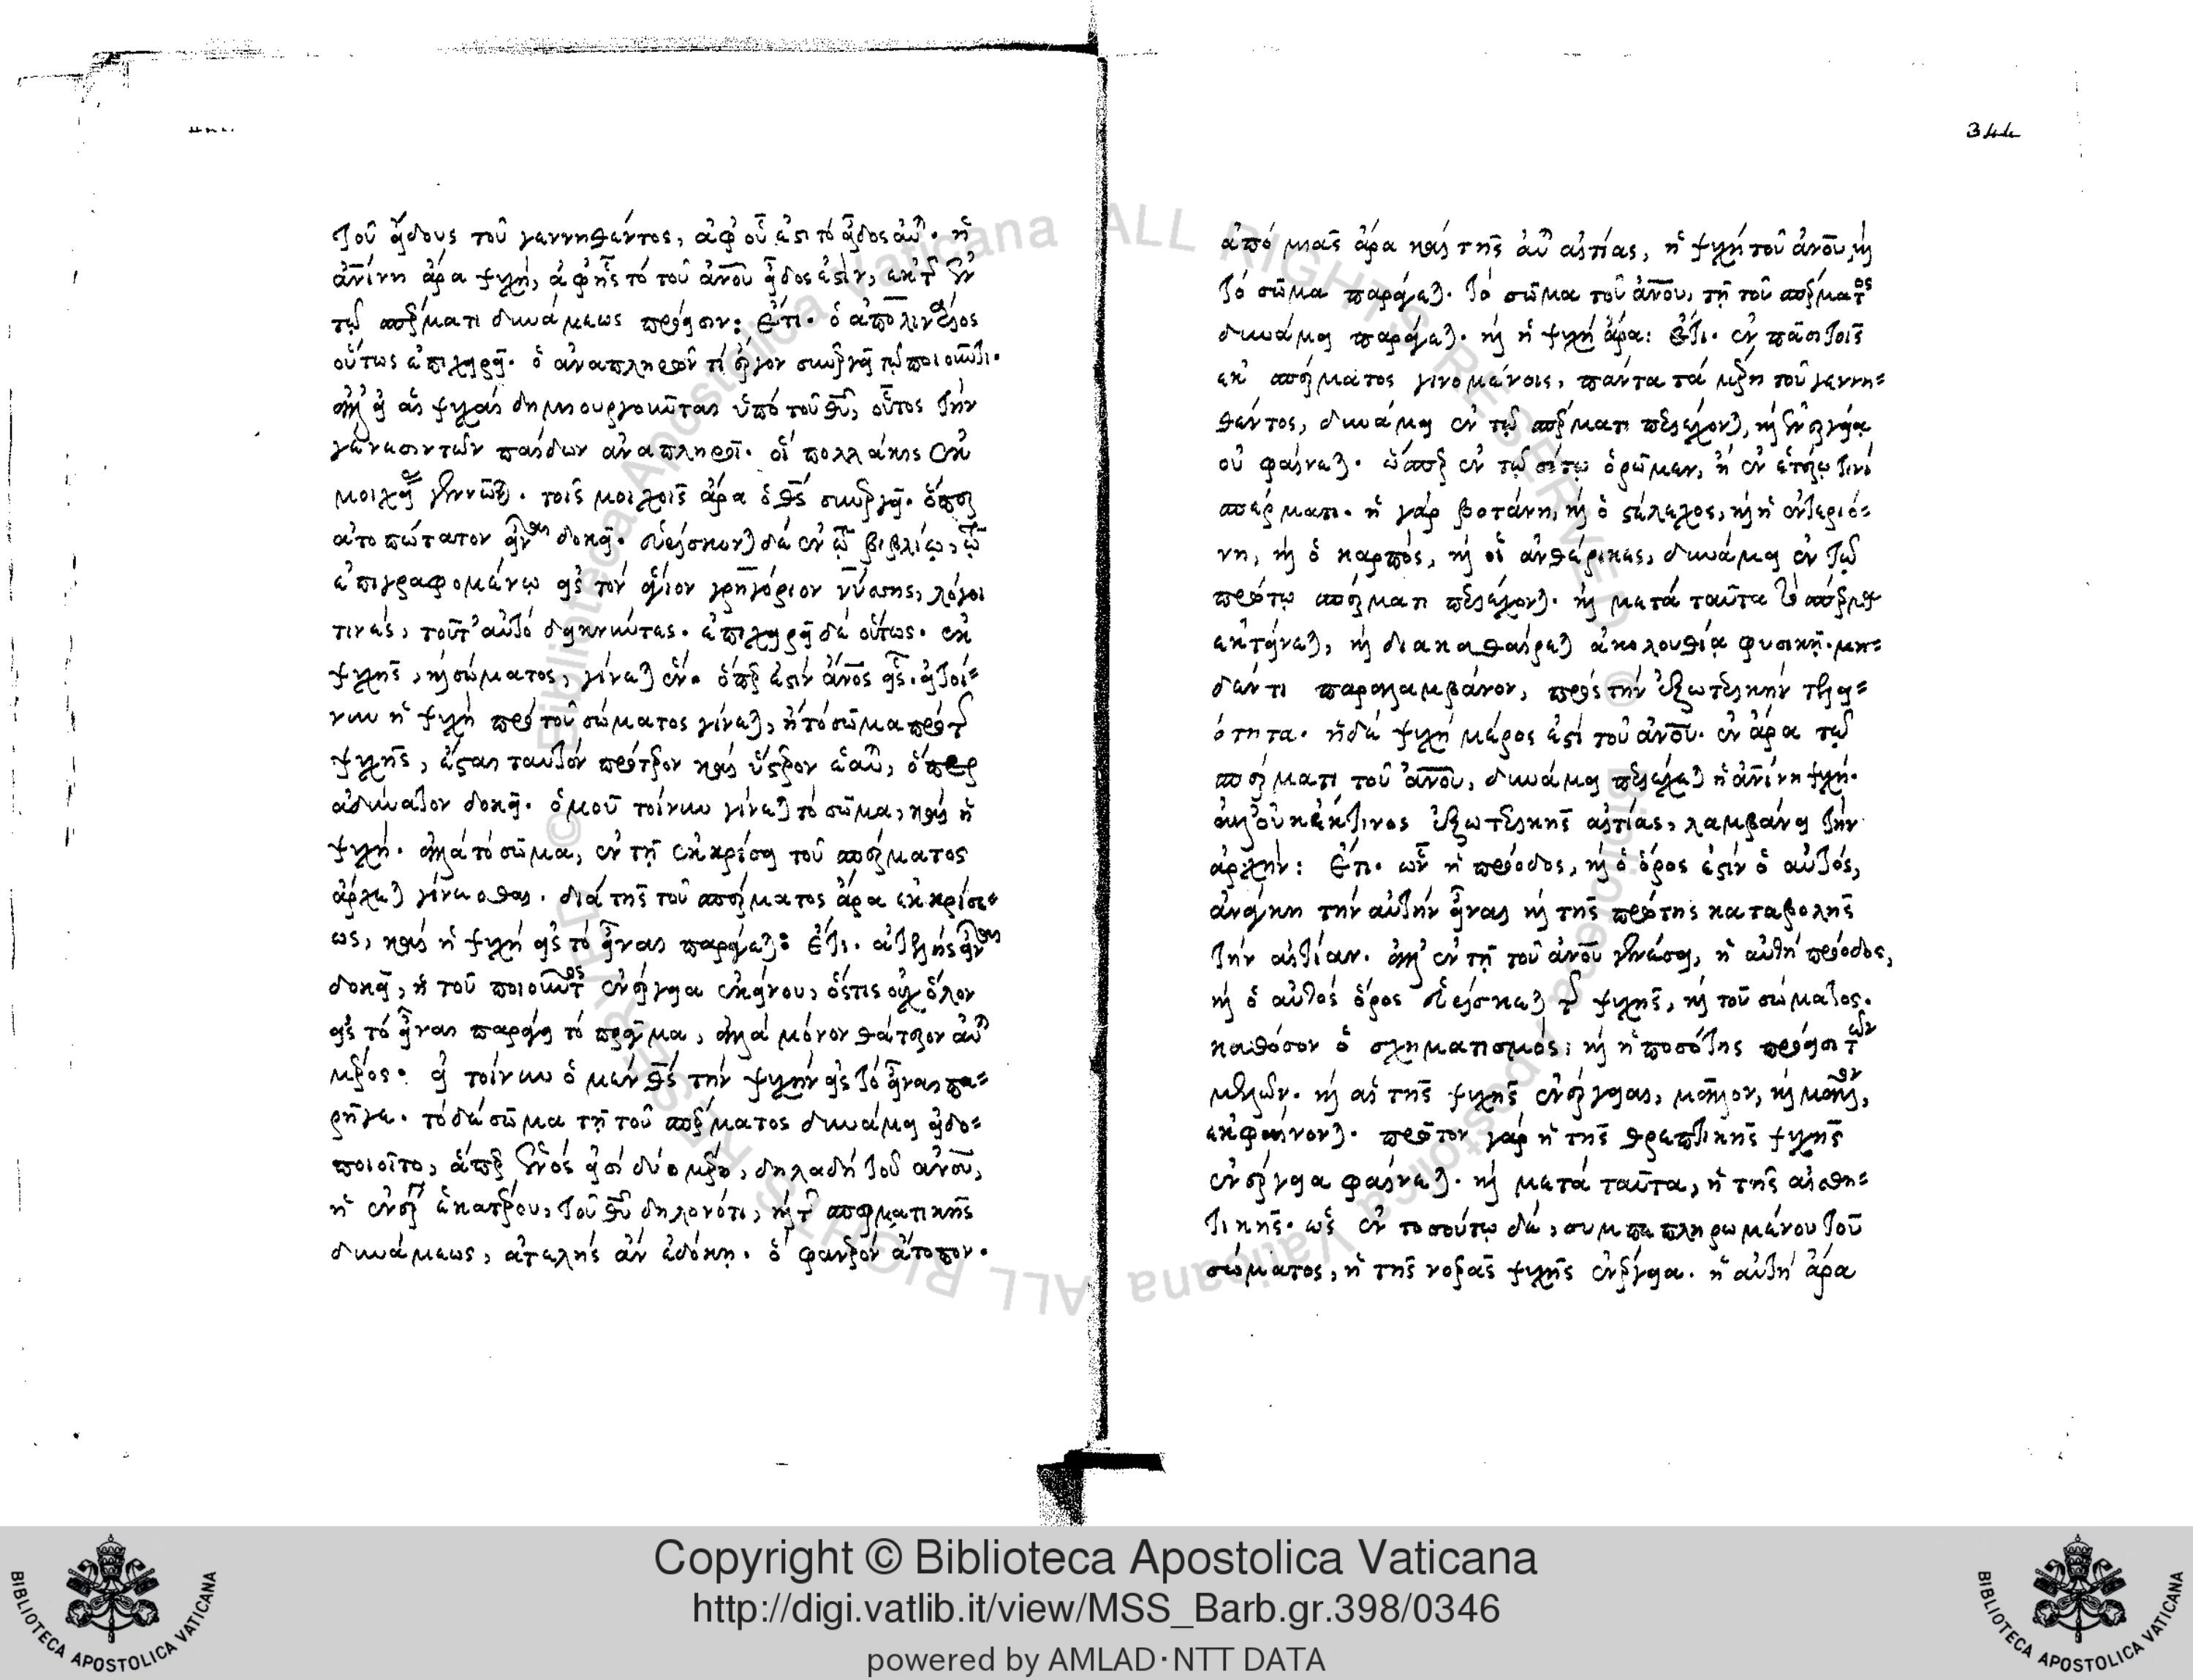 τοῦ εἴδους τοῦ γεννηθέντος, ἀφ' οὗ ἐστὶ τὸ εἶδος αὐτοῦ. ἡ
ἀνίνη ἄρα ψυχὴ, ἀφ' ἧς τὸ τοῦ ἀνου εἶδος ἐστὶν, ἐκ τῆς ἐν
τῷ σπέρματι δυνάμεως πρόεισιν: Ἔτι. ὁ ἀπολινάριος
οὕτως ἐπιχειρεῖ. ὁ ἀναπληρῶν τί ἔργον συνεργεῖ τῷ ποιοῦντι.
ἀλλ' εἰ αἱ ψυχαὶ δημιουργοῦνται ὑπὸ τοῦ θυ, οὗτος τὴν
γένεσιν τῶν παίδων ἀναπληροῖ. οἳ πολλάκις ἐκ
μοιχείας γεννῶνται. τοῖς μοιχοῖς ἄρα ὁ θς συνεργεῖ. ὅπερ
ἀτοπώτατον εἶναι δοκεῖ. εὑρίσκονται δὲ ἐν τῷ βιβλίῳ, τῷ
ἐπιγραφομένῳ εἰς τὸν ἅγιον γρηγόριον νύσσης, λόγοι
τινὲς, τοῦτ' αὐτὸ δεικνύντες. ἐπιχειρεῖ δὲ οὕτως. ἐκ
ψυχῆς, καὶ σώματος, γίνεται ἕν. ὅπερ ἐστὶν ἄνος εἷς. εἰ τοί-
νυν ἡ ψυχὴ πρὸ τοῦ σώματος γίνεται, ἢ τὸ σῶμα πρὸ τῆς
ψυχῆς, ἔσται ταυτὸν πρότερον καὶ ὕστερον ἑαυτοῦ, ὅπερ
ἀδύνατον δοκεῖ. ὁμοῦ τοίνυν γίνεται τὸ σῶμα, καὶ ἡ
ψυχή. ἀλλὰ τὸ σῶμα, ἐν τῇ ἐκκρίσει τοῦ σπέρματος
ἄρχεται γίνεσθαι. διὰ τῆς τοῦ σπέρματος ἄρα ἐκκρίσε-
ως, καὶ ἡ ψυχὴ εἰς τὸ εἶναι παράγεται: Ἔτι. ἀτελὴς εἶναι
δοκεῖ, ἡ τοῦ ποιοῦντος ἐνέργεια ἐκείνου, ὅστις οὐχ ὅλον
εἰς τὸ εἶναι παράγει τὸ πρᾶγμα, ἀλλὰ μόνον θάτερον αὐτοῦ
μέρος. εἰ τοίνυν ὁ μὲν θς τὴν ψυχὴν εἰς τὸ εἶναι πα-
ρῆγε. τὸ δὲ σῶμα τῇ τοῦ σπέρματος δυνάμει εἰδο-
ποιοῖτο, ἅπερ ἑνός εἰσι δύο μέρη, δηλαδὴ τοῦ ἀνου,
ἡ ἐνέργεια ἑκατέρου, τοῦ θυ δηλονότι, καὶ τῆς σπερματικῆς
δυνάμεως, ἀτελὴς ἂν ἐδόκει. ὃ φανερὸν ἄτοπον.
344
ἀπὸ μιᾶς ἄρα καὶ τῆς αὐτῆς αἰτίας, ἡ ψυχὴ τοῦ ἀνου, καὶ
τὸ σῶμα παράγεται. τὸ σῶμα τοῦ ἀνου, τῇ τοῦ σπέρματος
δυνάμει παράγεται. καὶ ἡ ψυχὴ ἄρα: Ἔτι. ἐν πᾶσι τοῖς
ἐκ σπέρματος γινομένοις, πάντα τὰ μέρη τοῦ γεννη-
θέντος, δυνάμει ἐν τῷ σπέρματι περιέχονται, καὶ ἐνεργείᾳ
οὐ φαίνεται. ὥσπερ ἐν τῷ σίτῳ ὁρῶμεν, ἢ ἐν ἑτέρῳ τινὶ
σπέρματι. ἡ γὰρ βοτάνη, καὶ ὁ στέλεχος, καὶ ἡ ἐντεριό-
νη, καὶ ὁ καρπὸς, καὶ οἱ ἀνθέρικες, δυνάμει ἐν τῷ
πρώτῳ σπέρματι περιέχονται. καὶ μετὰ ταῦτα τὸ σπέρμα
ἐκτείνεται, καὶ διακαθαίρεται ἀκολουθίᾳ φυσικῇ. μη-
δέν τι παραλαμβάνον, πρὸς τὴν ἐξωτερικὴν τελει-
ότητα. ἡ δὲ ψυχὴ μέρος ἐστὶ τοῦ ἀνου. ἐν ἄρα τῷ
σπέρματι τοῦ ἀνου, δυνάμει περιέχεται ἡ ἀνίνη ψυχή.
ἀλλ' οὐκ ἔκ τινος ἐξωτερικῆς αἰτίας, λαμβάνει τὴν
ἀρχήν: Ἔτι. ὧν ἡ πρόοδος, καὶ ὁ ὅρος ἐστὶν ὁ αὐτὸς,
ἀνάγκη τὴν αὐτὴν εἶναι καὶ τῆς πρώτης καταβολῆς
τὴν αἰτίαν. ἀλλ' ἐν τῇ τοῦ ἀνου γενέσει, ἡ αὐτὴ πρόοδος,
καὶ ὁ αὐτὸς ὅρος εὑρίσκεται τῆς ψυχῆς, καὶ τοῦ σώματος.
καθόσον ὁ σχηματισμὸς, καὶ ἡ ποσότης πρόεισι τῶν
μελῶν. καὶ αἱ τῆς ψυχῆς ἐνέργειαι, μᾶλλον, καὶ μᾶλλον,
ἐκφαίνονται. πρῶτον γὰρ ἡ τῆς θρεπτικῆς ψυχῆς
ἐνέργεια φαίνεται. καὶ μετὰ ταῦτα, ἡ τῆς αἰσθη-
τικῆς. ὡς ἐν τοσούτῳ δὲ, συμπεπληρωμένου τοῦ
σώματος, ἡ τῆς νοερᾶς ψυχῆς ἐνέργεια. ἡ αὐτὴ ἄρα
Copyright © Biblioteca Apostolica Vaticana
http://digi.vatlib.it/view/MSS_Barb.gr.398/0346
powered by AMLAD·NTT DATA